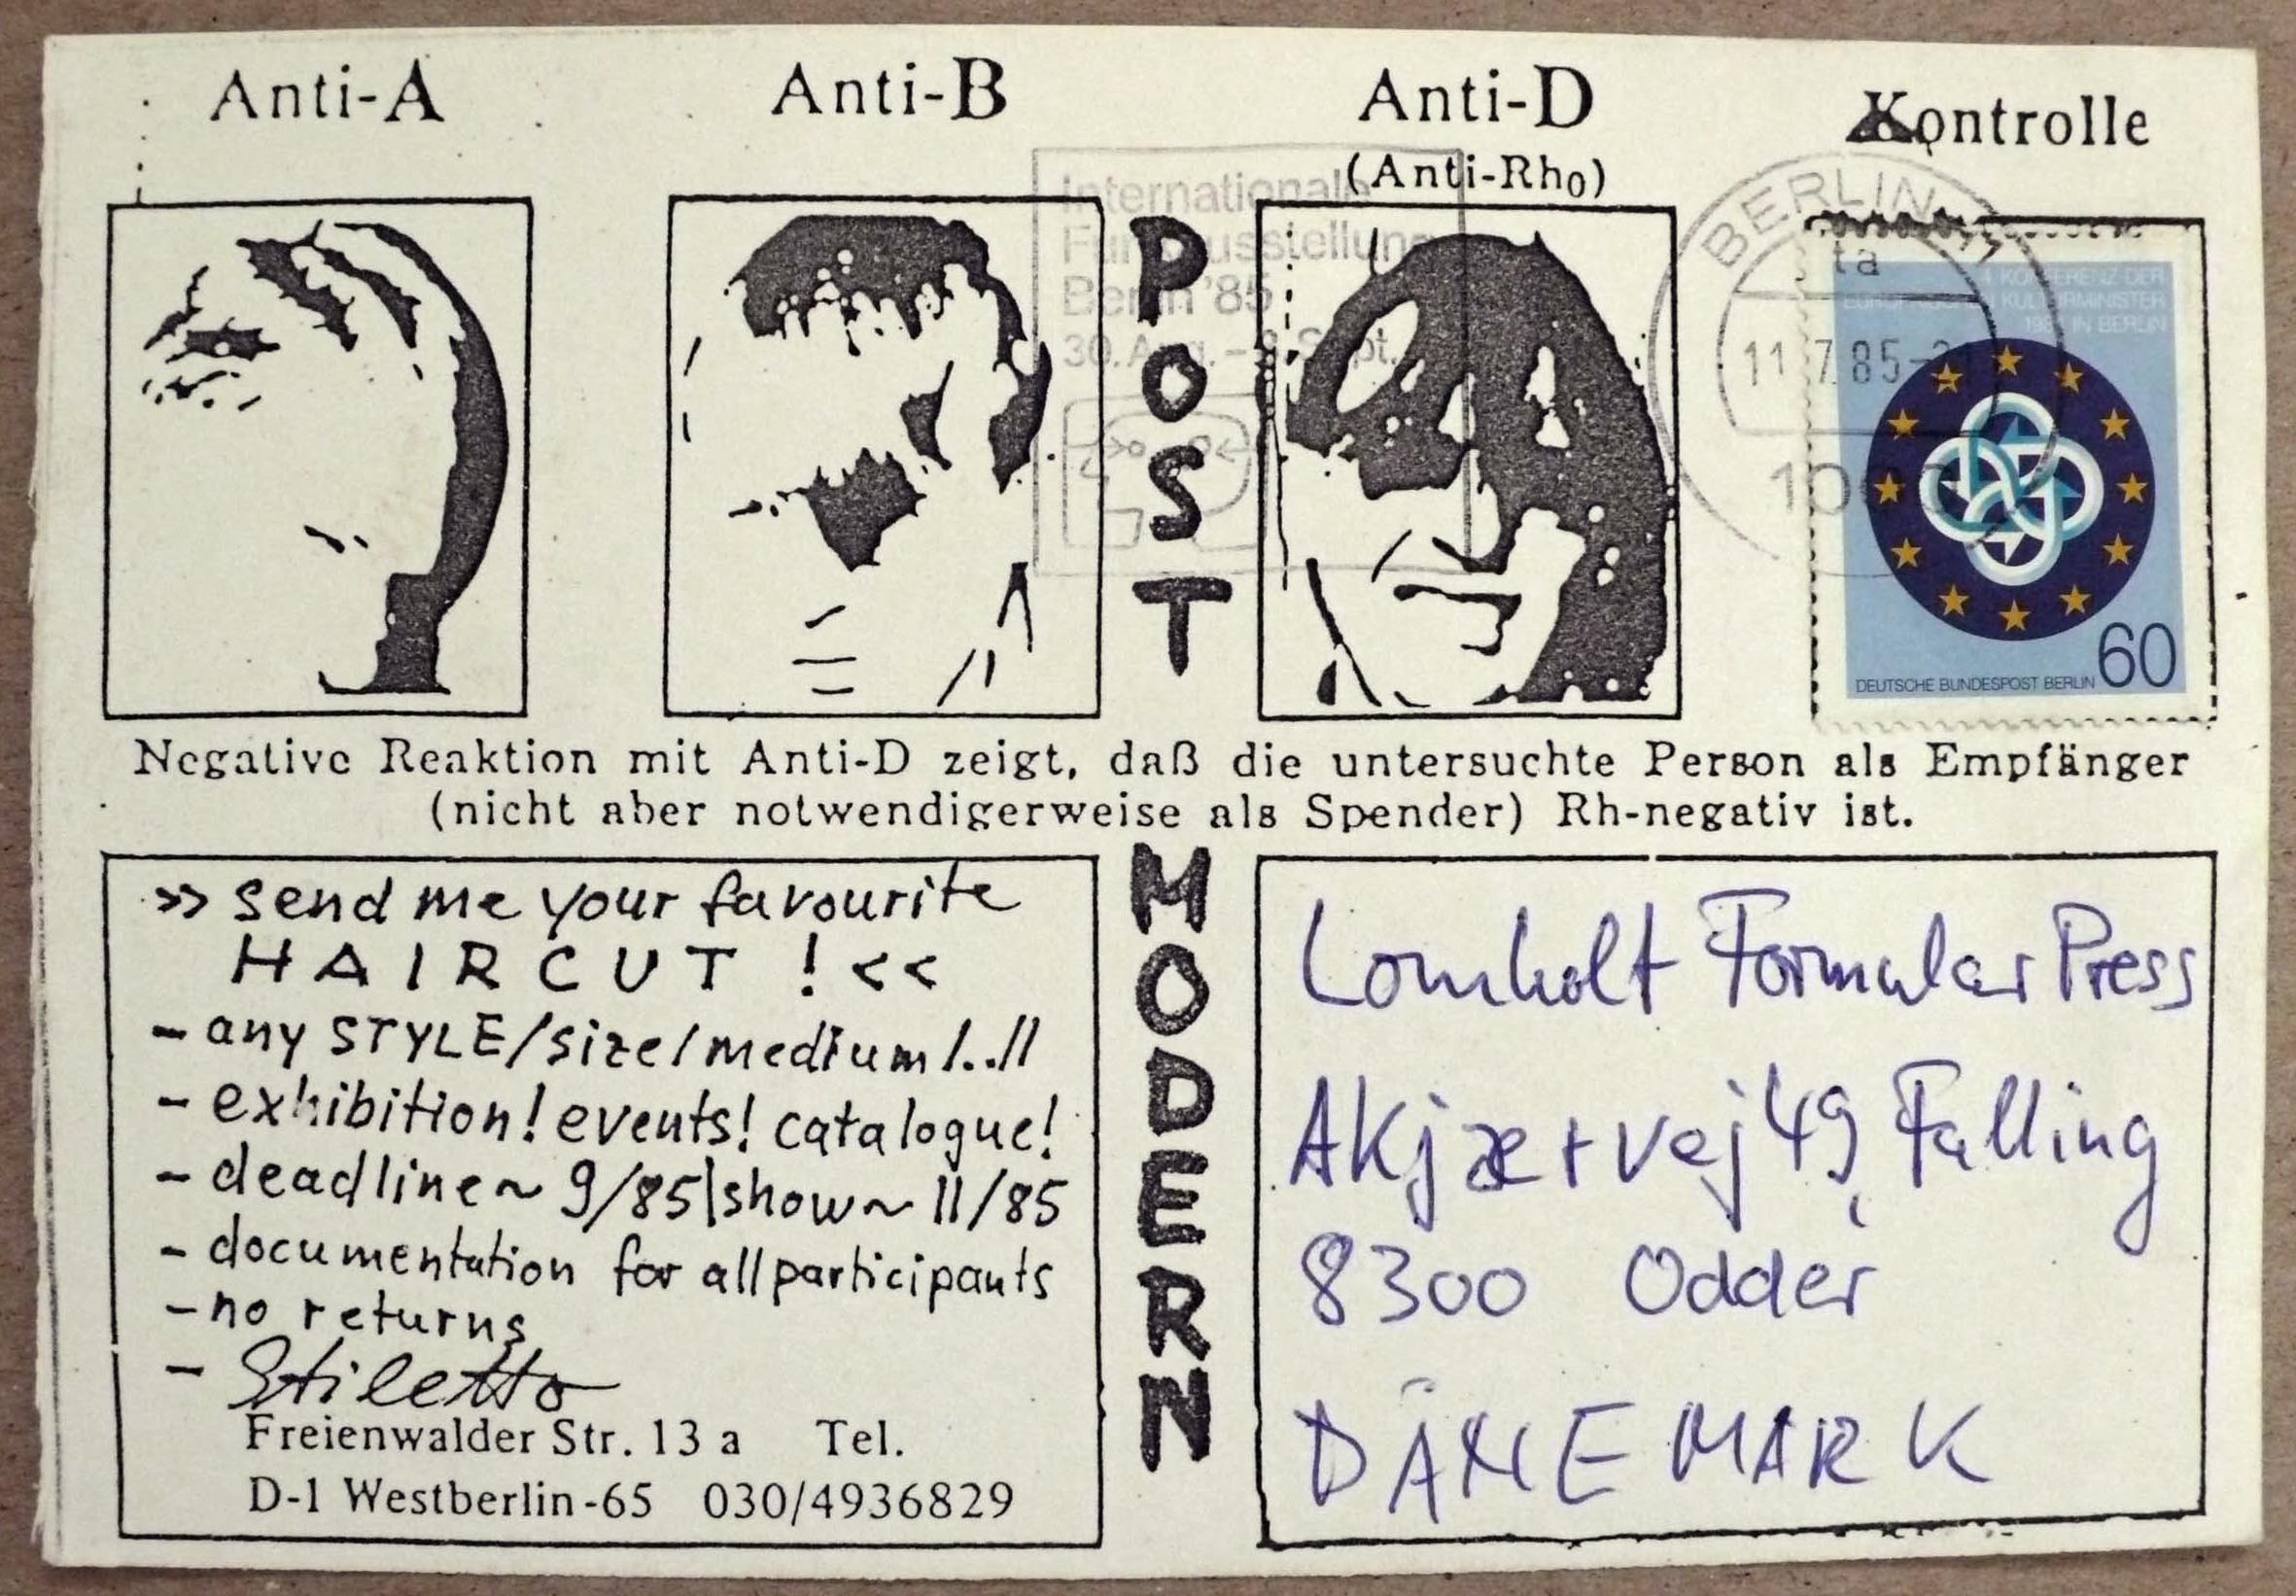 Anti-A Anti-B Anti-D Kontrolle
(Anti-Rh0)
Internationale
Funkausstellung
Berlin '85
30. Aug. – 8. Sept.
BERLIN 11
11.7.85
ta
4. KONFERENZ DER
EUROPÄISCHEN KULTURMINISTER
1984 IN BERLIN
60
DEUTSCHE BUNDESPOST BERLIN
POST
Negative Reaktion mit Anti-D zeigt, daß die untersuchte Person als Empfänger
(nicht aber notwendigerweise als Spender) Rh-negativ ist.
MODERN
>> send me your favourite
HAIRCUT ! <<
- any STYLE/size/medium/..//
- exhibition! events! catalogue!
- deadline ~ 9/85|show ~ 11/85
- documentation for all participants
- no returns
- Stiletto
Freienwalder Str. 13 a Tel.
D-1 Westberlin-65 030/4936829
Lomholt Formular Press
AKjærvej 49, Falling
8300 Odder
DÄNEMARK